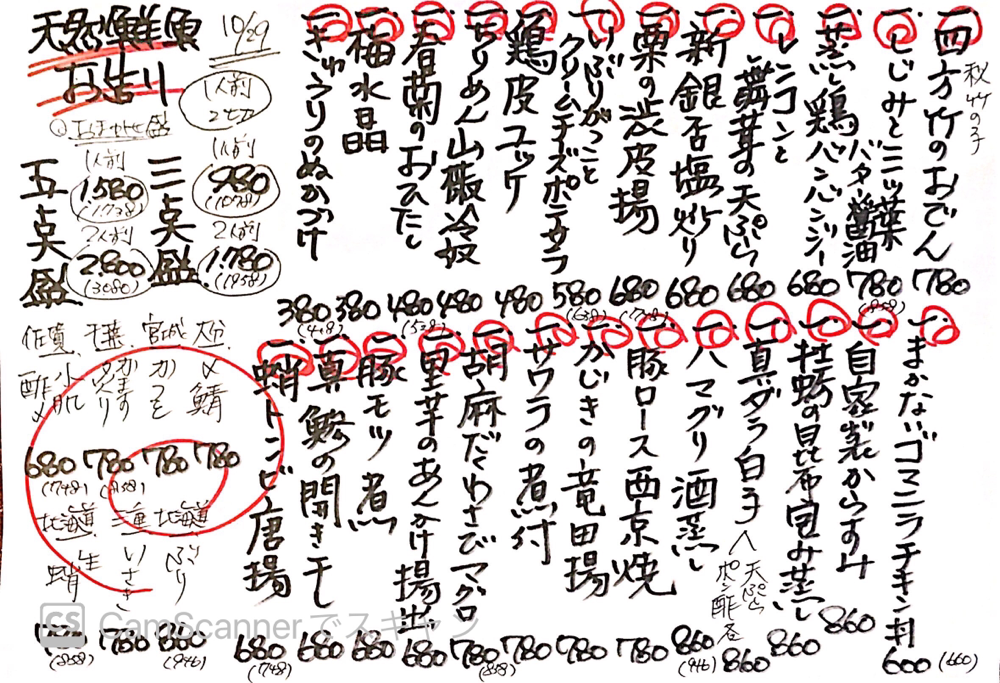 10/29
天然鮮魚
お造り
1人前
2切
①おまかせ盛
三点盛
1人前
980
(1078)
2人前
1.780
(1958)
五点盛
1人前
1.580
(1738)
2人前
2.800
(3080)
大分
〆鯖
780
宮城
かつを
780
千葉
780
(858)
佐賀
小肌
酢〆
680
(748)
北海道
ぶり
860
(946)
三重
いさき
780
北海道
生蛸
(858)
一、四方竹のおでん
秋竹の子
780
一、しじみと三ッ葉
バター醤油
780
(858)
一、蒸し鶏バンバンジー
680
一、レンコンと
舞茸の天ぷら
680
一、新銀杏塩炒り
680
一、栗の渋皮揚
680
(748)
一、いぶりがっこと
クリームチーズポテサラ
580
(638)
一、鶏皮ユッケ
480
一、ちりめん山椒冷奴
480
一、春菊のおひたし
480
(528)
一、福水晶
380
一、きゅうりのぬかづけ
380
(418)
一、まかないゴマニラチキン丼
600
(660)
一、自家製からすみ
860
一、牡蠣の昆布包み蒸し
860
一、真ダラ白子
天ぷら
ポン酢
各
860
一、ハマグリ酒蒸し
860
(946)
一、豚ロース西京焼
780
一、かじきの竜田揚
780
一、サワラの煮付
780
一、胡麻だくわさびマグロ
780
(858)
一、里芋のあんかけ揚出
680
一、豚モツ煮
680
一、真鯵の開き干し
680
一、蛸トンビ唐揚
680
(748)
CS CamScannerでスキャン